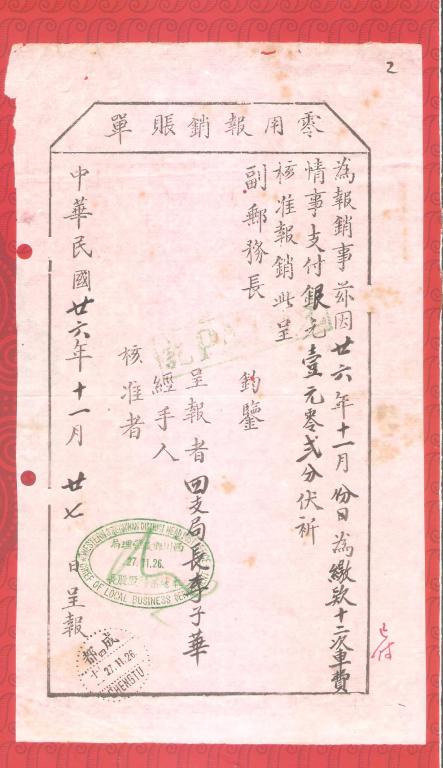 2
零用報銷賬單
為報銷事茲因廿六年十一月份日為繳欵十二次車費
情事支付銀元壹元零弍分伏祈
核准報銷此呈
副郵務長 鈞鑒
呈報者四支局長李子華
經手人
核准者
中華民國廿六年十一月廿七日呈報
已付
西川郵政管理局
27.11.26.
CHIEF OF LOCAL BUSINESS
成都
27.11.26
CHENGTU